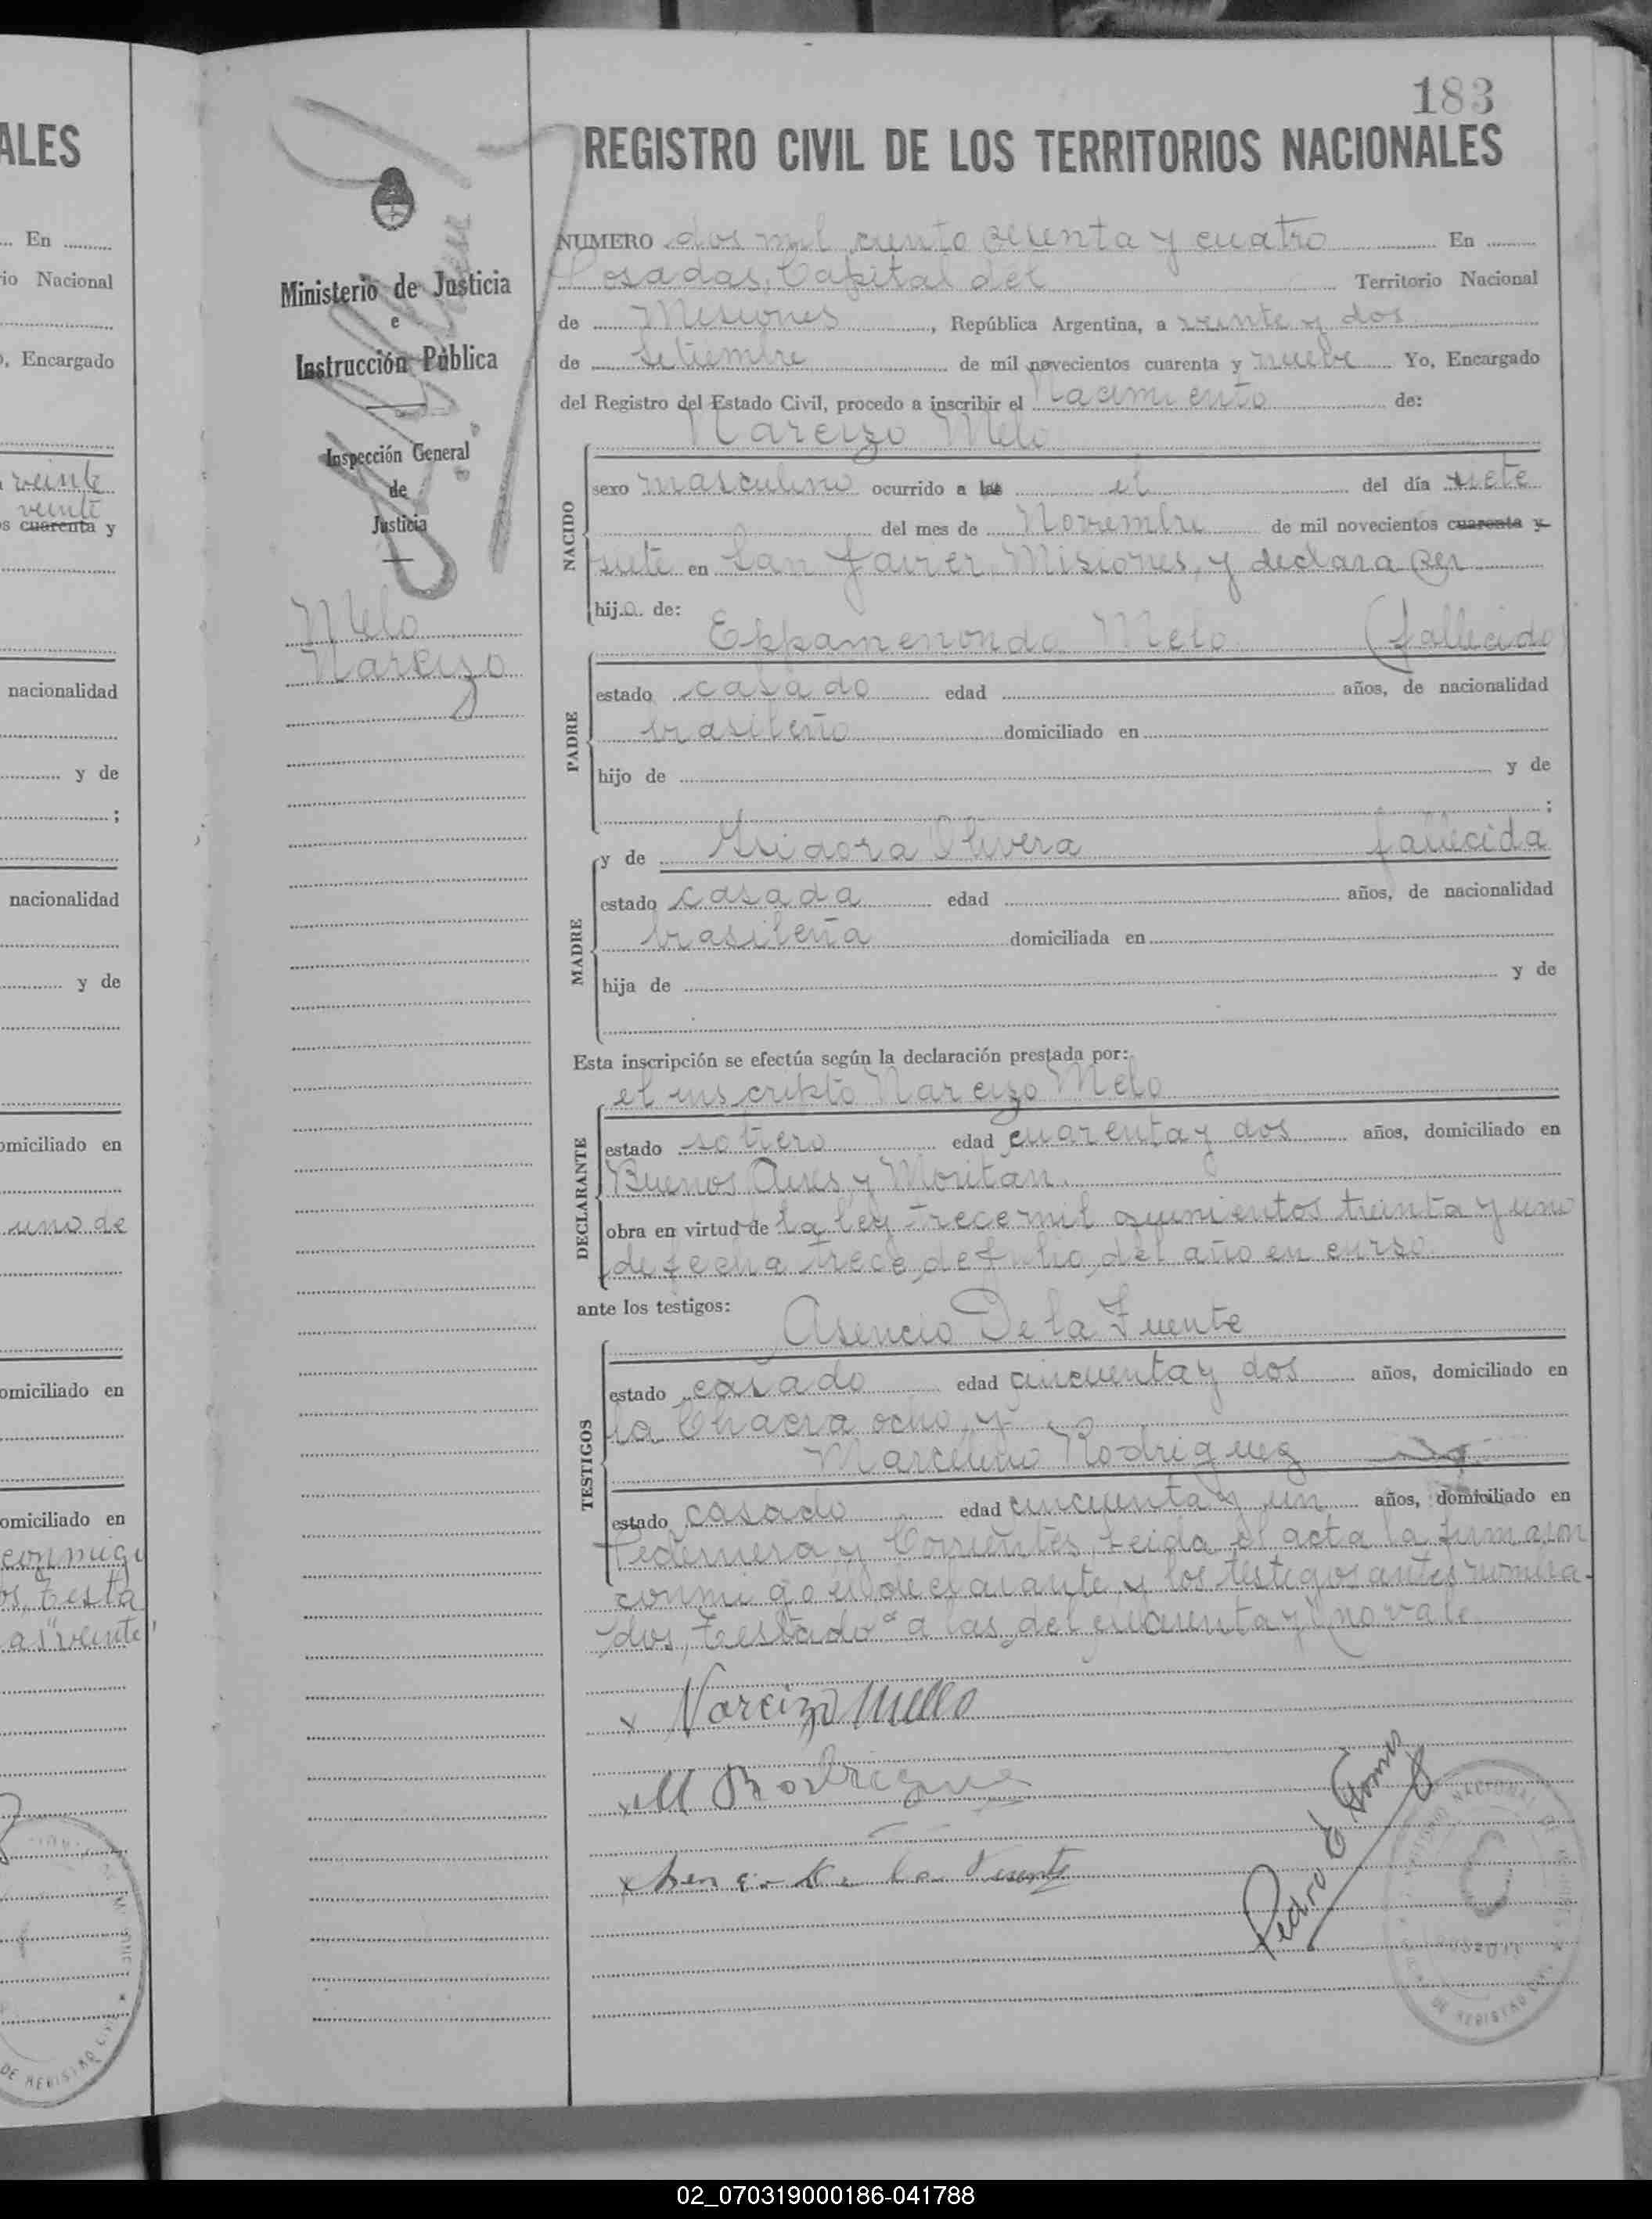 ALES
En
io Nacional
o, Encargado
veinte
veinte
s cuarenta y
nacionalidad
y de
;
nacionalidad
y de
omiciliado en
uno de
omiciliado en
omiciliado en
conmigo
os, Testa
as "veinte"
183
REGISTRO CIVIL DE LOS TERRITORIOS NACIONALES
Ministerio de Justicia
e
Instrucción Pública
Inspección General
de
Justicia
Melo
Narcizo
NUMERO dos mil ciento sesenta y cuatro En
Posadas, Capital del Territorio Nacional
de Misiones, República Argentina, a veinte y dos
de Setiembre de mil novecientos cuarenta y nueve Yo, Encargado
del Registro del Estado Civil, procedo a inscribir el Nacimiento de:
Narcizo Melo
NACIDO
sexo masculino ocurrido a las el del día siete
del mes de Noviembre de mil novecientos cuarenta y
siete en San Javier, Misiones, y declara ser
hijo de:
Eppamenondo Melo (fallecido
PADRE
estado casado edad años, de nacionalidad
brasileño domiciliado en
hijo de y de
;
y de Isidora Olivera fallecida
MADRE
estado casada edad años, de nacionalidad
brasileña domiciliada en
hija de y de
Esta inscripción se efectúa según la declaración prestada por:
el inscripto Narcizo Melo
DECLARANTE
estado soltero edad cuarenta y dos años, domiciliado en
Buenos Aires y Moritan
obra en virtud de la ley trece mil quinientos treinta y uno
de fecha trece de Julio del año en curso
ante los testigos:
Asencio De la Fuente
TESTIGOS
estado casado edad cincuenta y dos años, domiciliado en
la Chacra ocho, y
Marcelino Rodriguez
estado casado edad cincuenta y un años, domiciliado en
Pedernera y Corrientes, Leida el acta la firmaron
conmigo el declarante y los testigos antes nombra-
dos, Testado "a las, del cuarenta y" no vale
x Narcizo Mello
x M Rodriguez
x Asencio De la Fuente
Pedro E Gomez
02_070319000186-041788